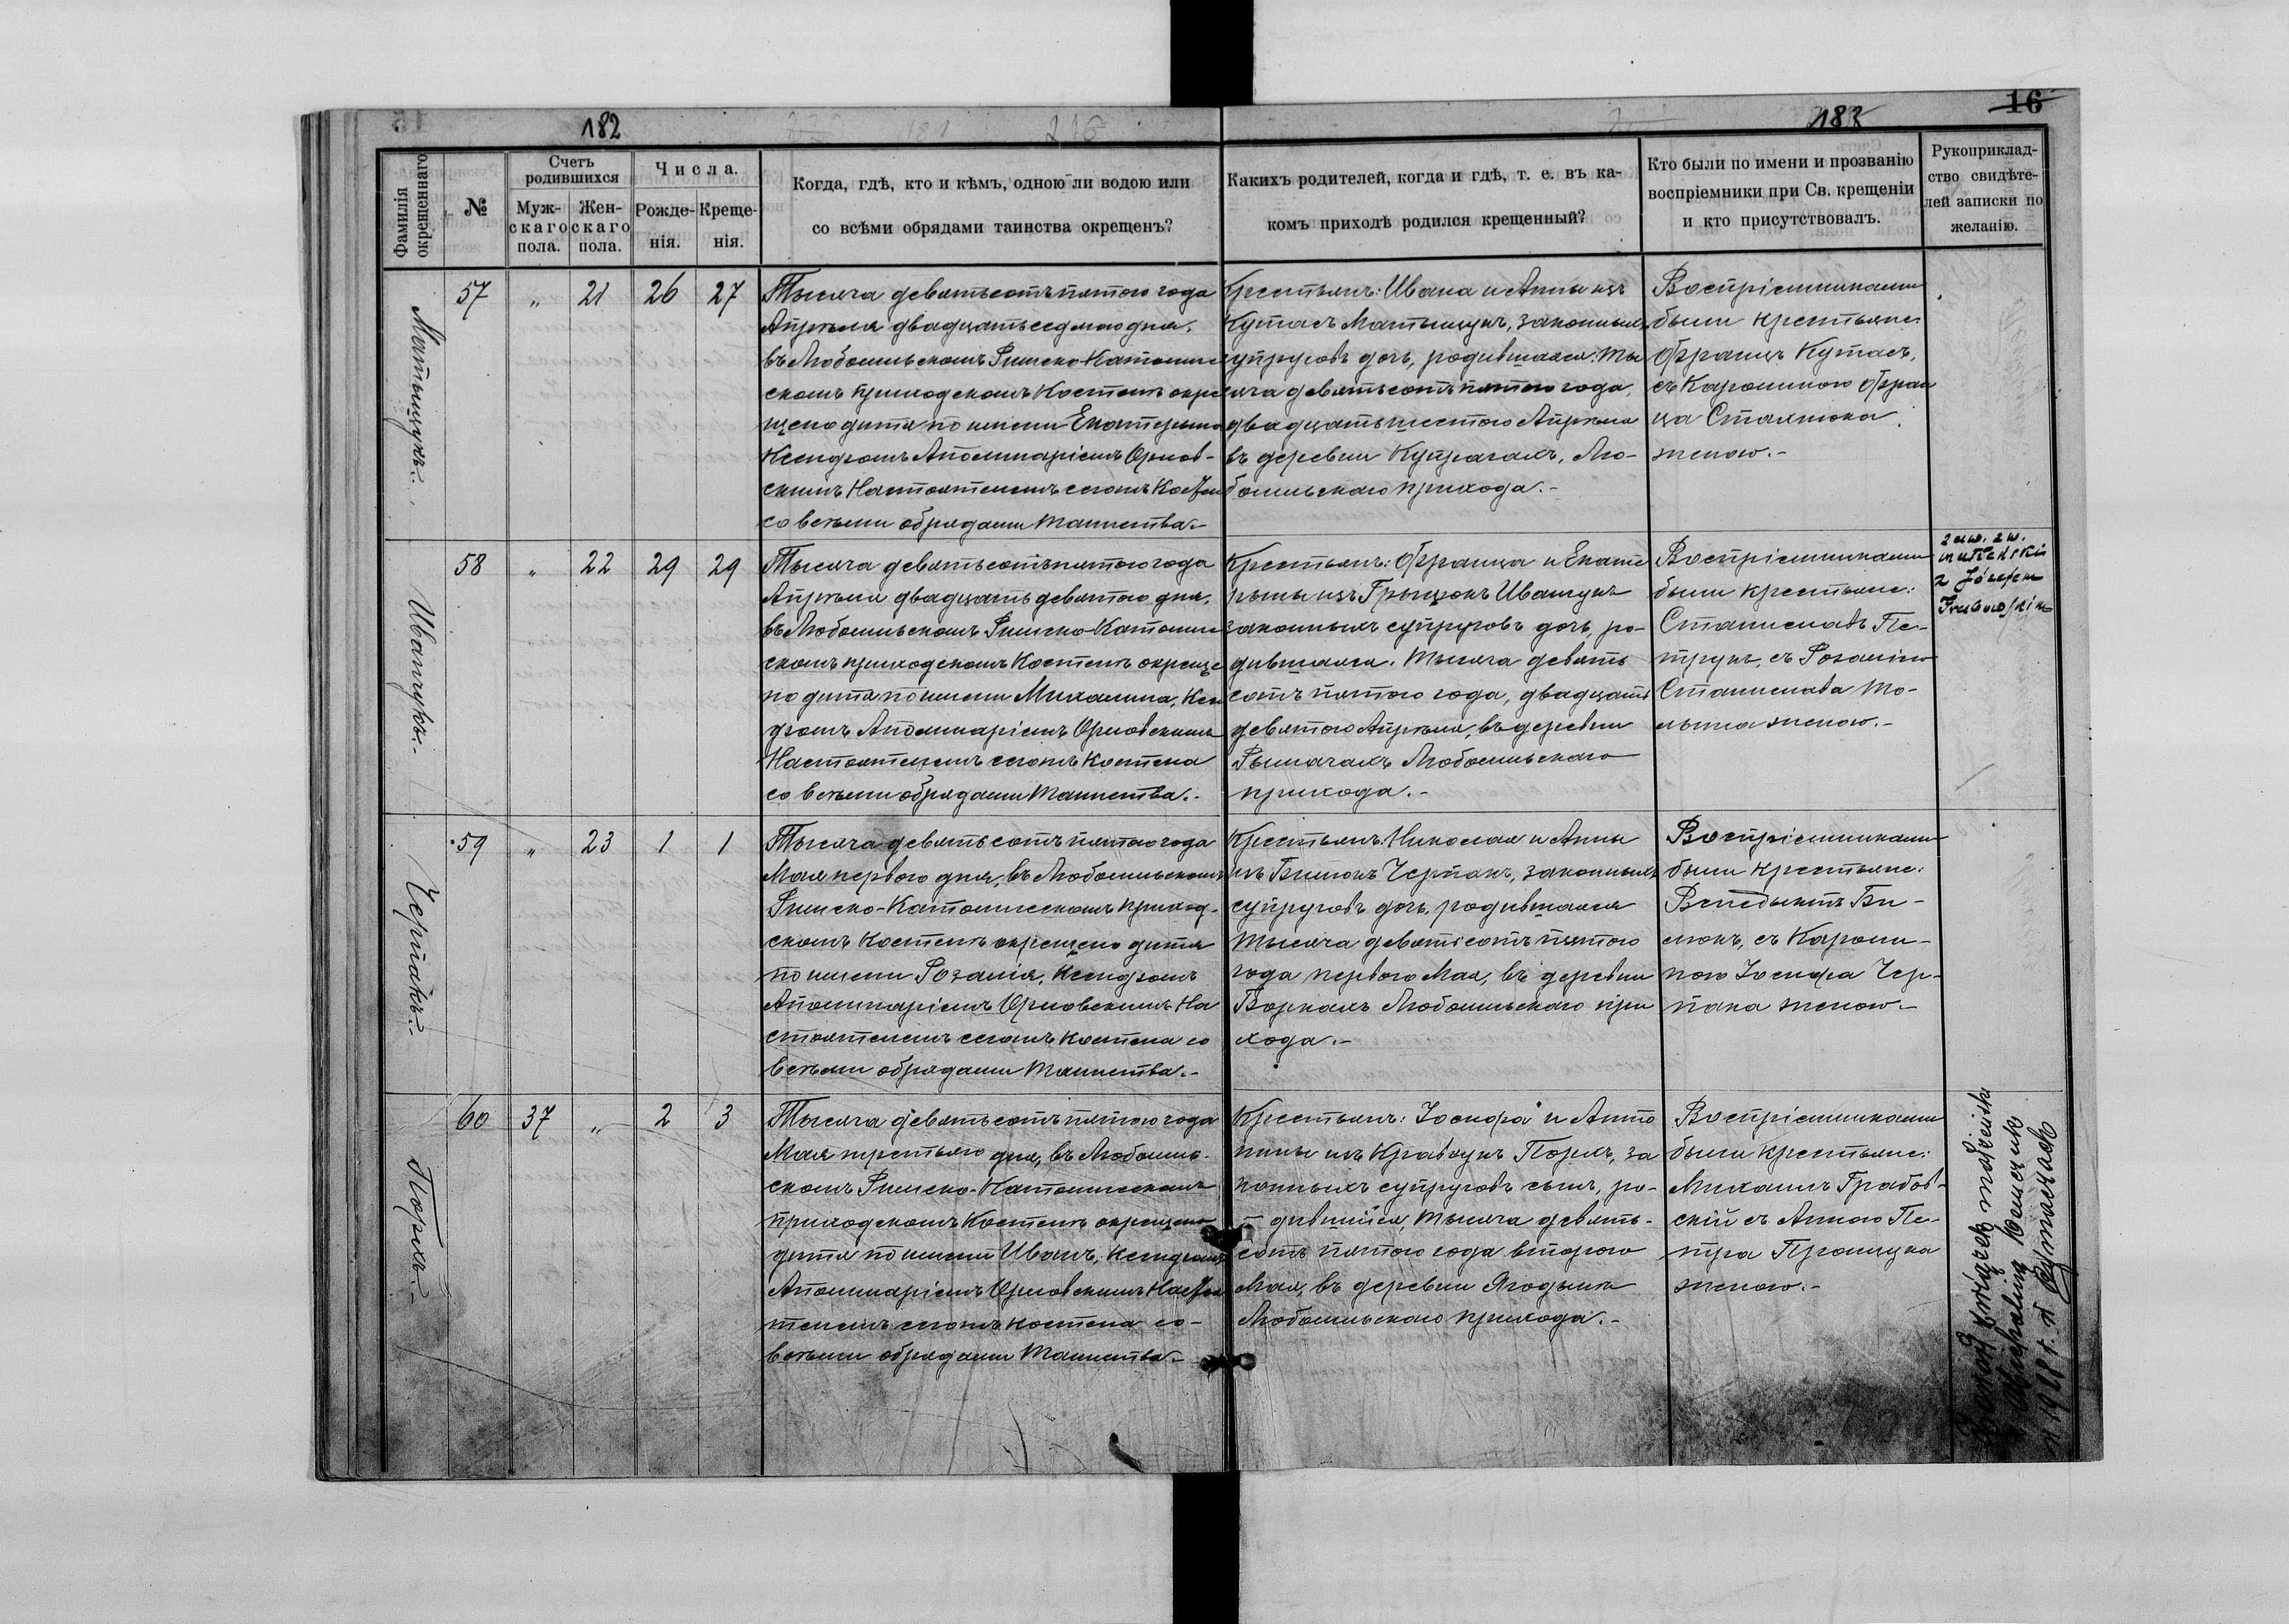 182
183
16
Фамилія окрещеннаго
№
Счетъ родившихся
Мужскаго пола.
Женскаго пола.
Числа.
Рожденія.
Крещенія.
Когда, гдѣ, кто и кѣмъ, одною ли водою или
со всѣми обрядами таинства окрещенъ?
Какихъ родителей, когда и гдѣ, т. е. въ ка-
комъ приходѣ родился крещенный?
Кто были по имени и прозванію
воспріемники при Св. крещеніи
и кто присутствовалъ.
Рукоприклад-
ство свидѣте-
лей записки по
желанію.
57 " 21 26 27
Тысяча девятьсотъ пятого года
Апрѣля двадцать седмого дня,
въ Любомльскомъ Римско-Католиче
скомъ приходскомъ Костелѣ окре
щено дитя по имени Екатерина
Ксендзомъ Аполинаріемъ Орлов-
скимъ Настоятелемъ сегожъ Костел
со всѣми обрядами Таинства.-
Крестьянъ: Ивана и Анны изъ
Кутасъ Матыщукъ, законныхъ
супруговъ дочь, родившаяся: Ты
сяча девятьсотъ пятого года,
двадцать шестого Апрѣля
въ деревни Купрачахъ, Лю-
бомльскаго прихода.-
Воспріемниками
были крестьяне
Францъ Кутасъ,
съ Каролиною Фран
ца Сталюка
женою.-
58 " 22 29 29
Иванчукъ.-
Тысяча девятьсотъ пятого года
Апрѣля двадцать девятого дня,
въ Любомльскомъ Римско-Католиче
скомъ приходскомъ Костелѣ окреще
но дитя по имени Михалина, Ксен
дзомъ Аполинаріемъ Орловскимъ
Настоятелемъ сегожъ Костела
со всѣми обрядами Таинства.-
Крестьянъ: Франца и Екате
рины изъ Грыцюкъ Иванчукъ
законныхъ супруговъ дочь, ро-
дившаяся. Тысяча девять
сотъ пятого года, двадцать
девятого Апрѣля, въ деревни
Рымачахъ Любомльскаго
прихода.-
Воспріемниками
были крестьяне:
Станиславъ Пе-
трукъ, съ Розаліею
Станислава То-
женою.-
zaw. zw.
małżeński
z Józefem
59 " 23 1 1
Черпакъ.-
Тысяча девятьсотъ пятого года
Мая первого дня, въ Любомльскомъ
Римско-Католическомъ приход-
скомъ Костелѣ окрещено дитя
по имени Розалія, Ксендзомъ
Аполинаріемъ Орловскимъ На
стоятелемъ сегожъ Костела со
всѣми обрядами Таинства.-
Крестьянъ: Николая и Анны
изъ Билюкъ Черпакъ, законныхъ
супруговъ дочь, родившаяся
Тысяча девятьсотъ пятого
года первого Мая, въ деревни
Боркахъ Любомльскаго при
хода.-
Воспріемниками
были крестьяне:
Венедыктъ Би-
люкъ, съ Кароли-
ною Іосифа Чер-
пака женою.-
60 37 " 2 3
Тысяча девятьсотъ пятого года
Мая третьяго дня, въ Любомль-
скомъ Римско-Католическомъ
приходскомъ Костелѣ окрещено
дитя по имени Иванъ, Ксендзомъ
Аполинаріемъ Орловскимъ Настоя
телемъ сегожъ Костела со-
всѣми обрядами Таинства.-
Крестьянъ: Іосифа и Анто
нины изъ Кравчукъ Порхъ, за
конныхъ супруговъ сынъ, ро-
дившійся, Тысяча девять-
сотъ пятого года второго
Мая, въ деревни Ягодынъ
Любомльскаго прихода.-
Воспріемниками
были крестьяне:
Михаилъ Грабов-
скій съ Анною Пе-
тра Працука
женою.-
Zawarł związek małżeński
z Michaliną
w 1928 r. w Rymaczach